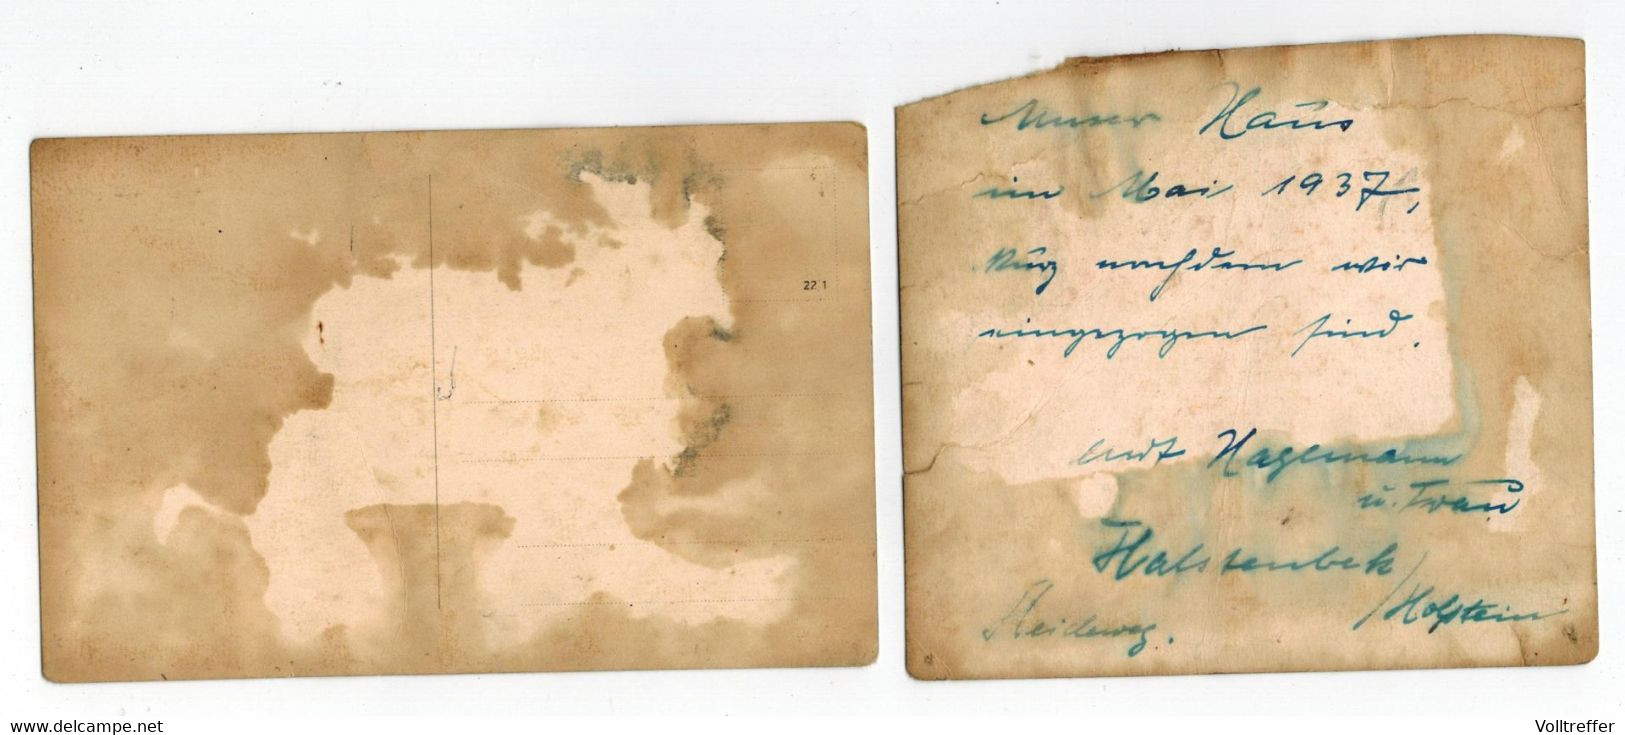 221
Unser Haus
im Mai 1937,
kurz nachdem wir
eingezogen sind.
Hagemann
u. Frau
Halstenbek
/Holstein
Heideweg.
© delcampe.net
Volltreffer